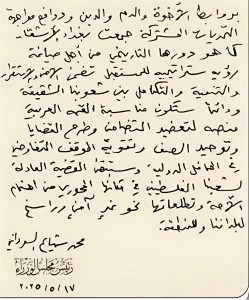 بروابط الأخوة والدم والدين ودوافع مواجهة
التحديات المشتركة جمعت بغداد الأشقاء
كما هو دورها التاريخي من أجل صياغة
رؤية ستراتيجية للمستقبل تضمن الأمن والاستقرار
والتنمية والتكامل بين شعوبنا الشقيقة
ودائماً ستكون مناسبة القمة العربية
منصة لتعضيد التضامن وطرح القضايا
وتوحيد الصف وتقوية الموقف التفاوضي
في المحافل الدولية. وستبقى القضية العادلة
لشعبنا الفلسطيني في مكانها المحوري من اهتمام
الأمة وتطلعاتها نحو غدٍ آمن وراسخ
لبلداننا وللمنطقة.
محمد شياع السوداني
رئيس مجلس الوزراء
٢٠٢٥/٥/١٧